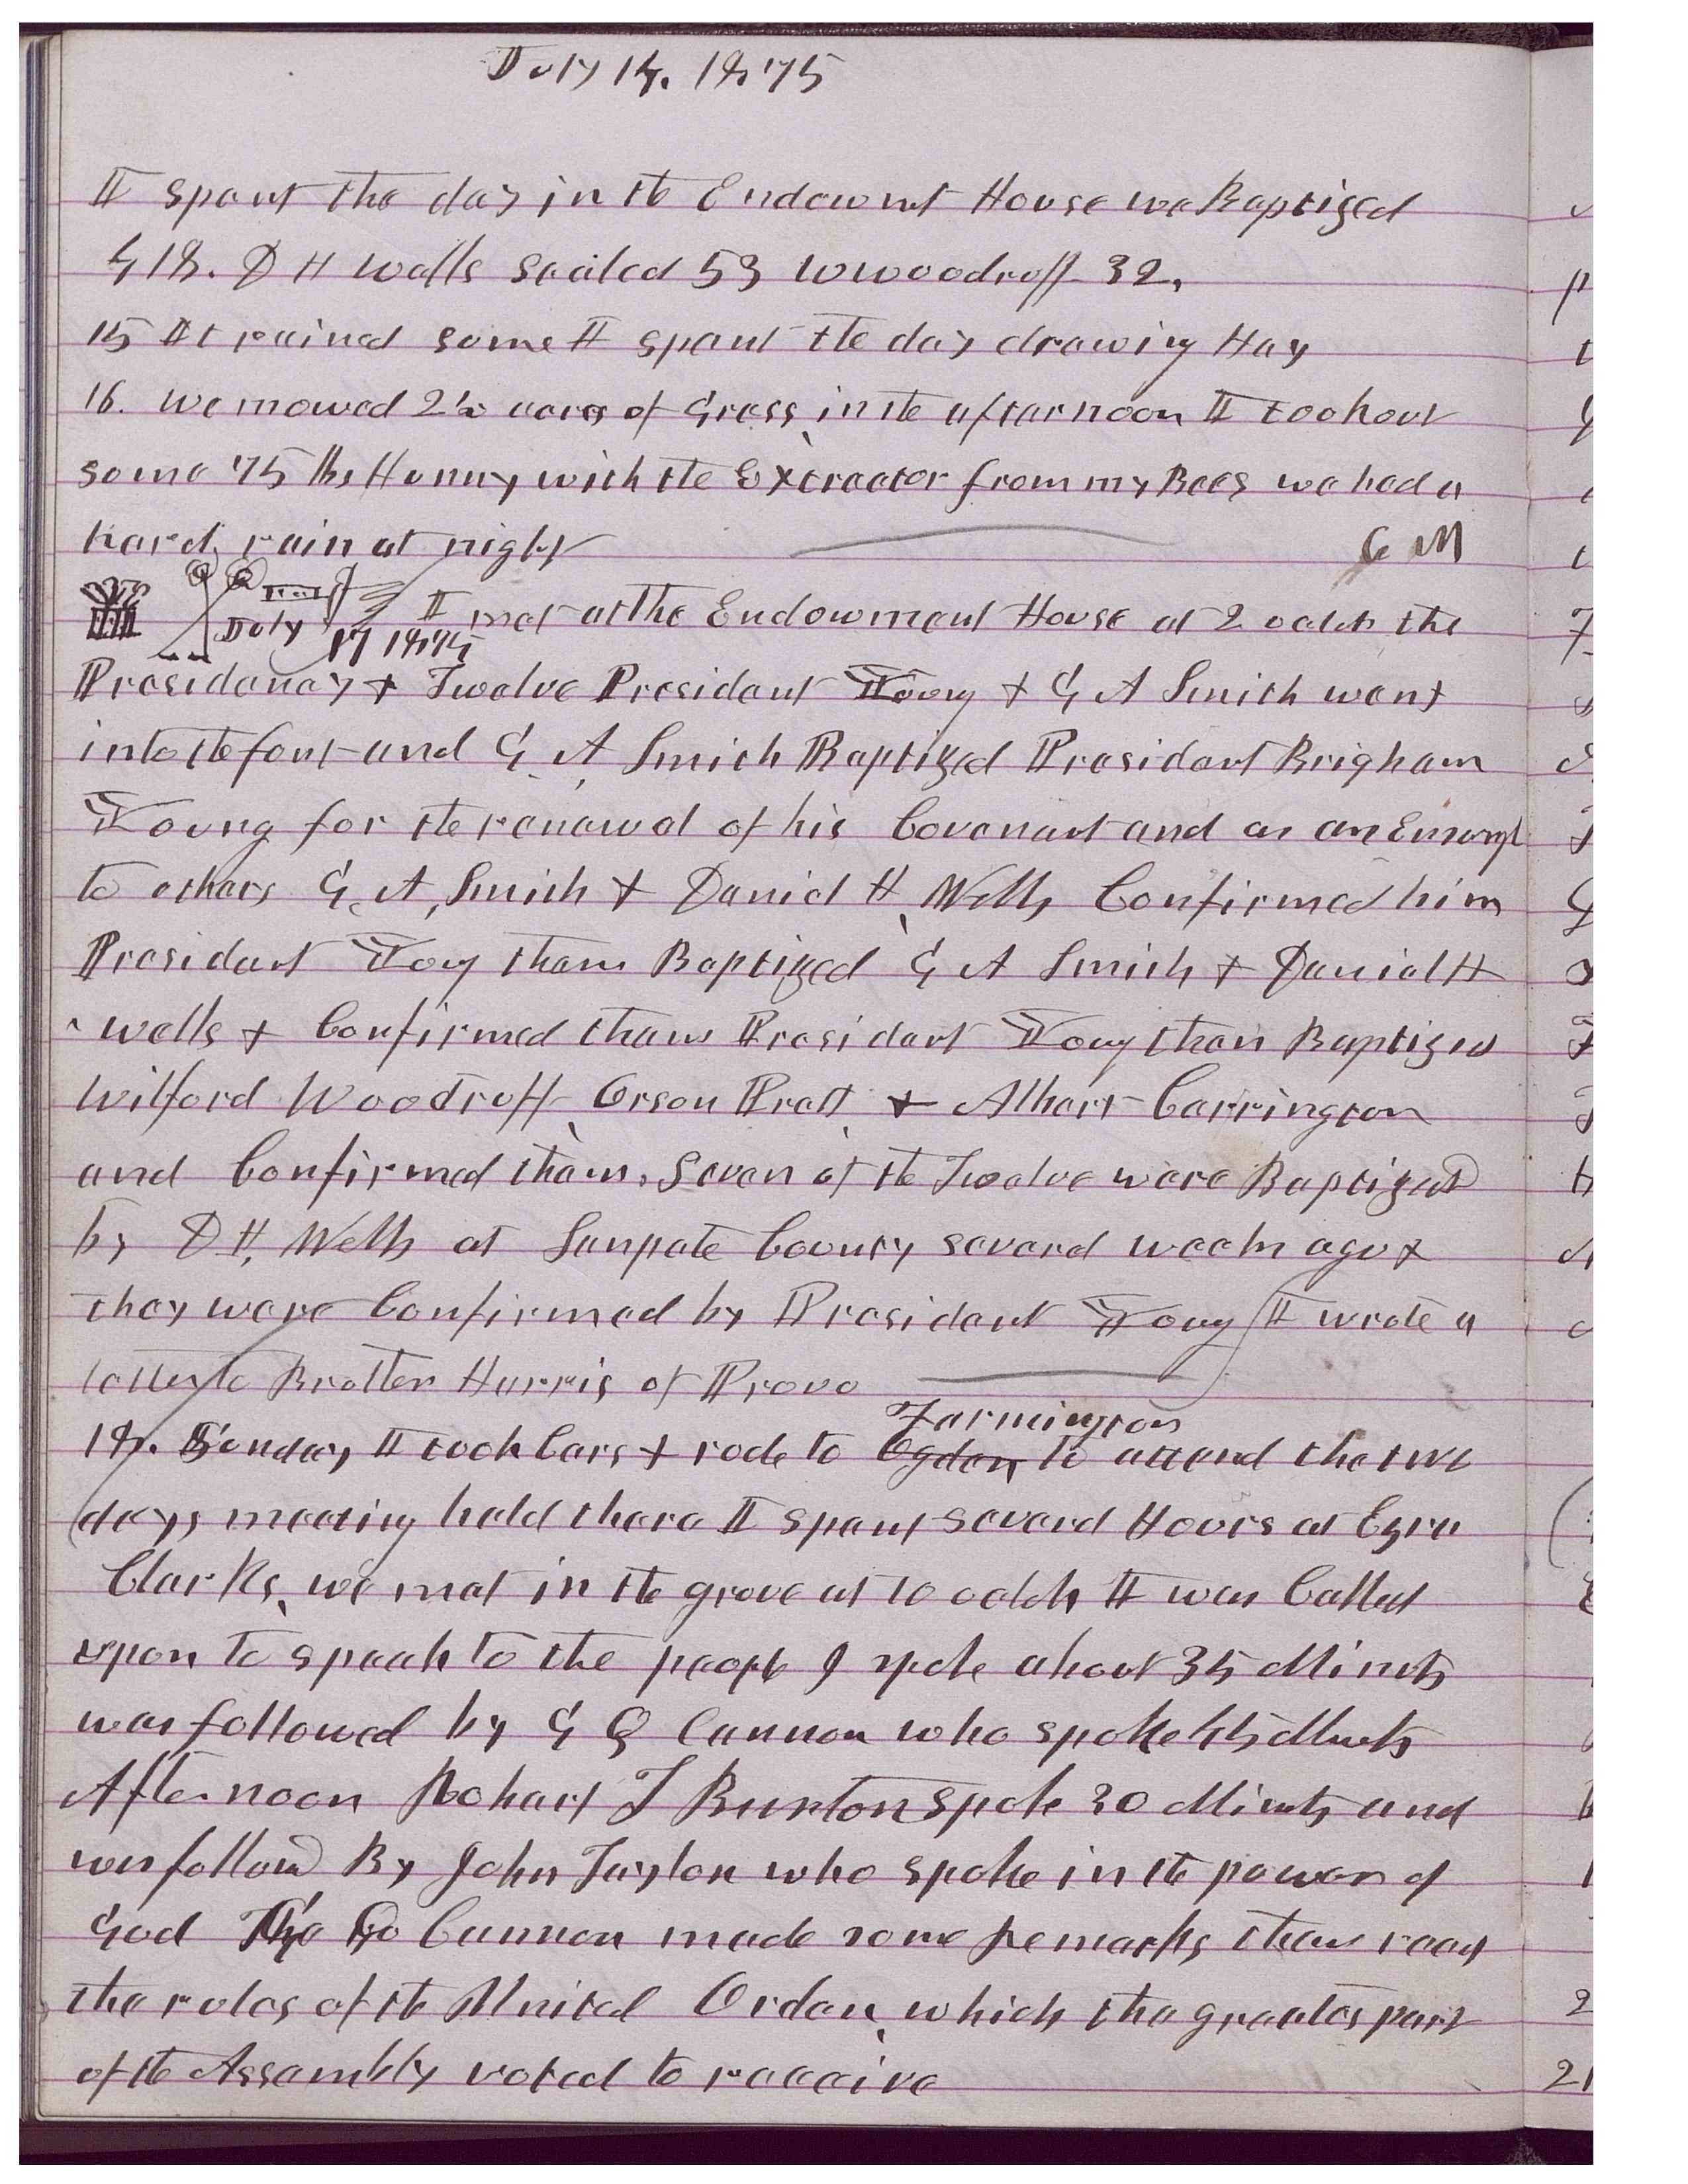 July 14. 1875
I spent the day in the Endowmt House we Baptized
418. D H Wells Sealed 53 W Woodruff 32.
15 It rained some I spent the day drawing Hay
16. we mowed 2½ acres of Grass, in the afternoon I took out
some 75 lbs Hunny with the Extractor from my Bees we had a
hard rain at night
G M
July 17 1875 I met at the Endowment House at 2 oclok the
Presidency & Twelve President Young & G A Smith went
into the font and G. A Smith Baptized President Brigham
Young for the renewal of his Covenant and as an Exampl
to others G. A. Smith & Daniel H. Wells Confirmed him
President Young them Baptized G A Smith & Daniel H
wells & Confirmed them President Young then Baptized
Wilford Woodruff, Orson Pratt, & Albert Carrington
and Confirmed them, Seven of the Twelve were Baptized
by D H, Wells at Sanpete County several weeks ago &
they were Confirmed by President Young I wrote a
letter to Brother Harris of Provo
Farmington
18. Sunday I took Cars & rode to Ogden to attend the two
days meeting held there I spent several Hours at Ezra
Clarks, we met in the grove at 10 oclok I was Called
upon to speak to the people I spoke about 35 Minuts
was followed by G Q Cannon who spoke 45 Minuts
Afternoon Robert T Burton spoke 30 Minuts and
was followed By John Taylor who spoke in the power of
God Cannon made some remarks then read
the rules of the United Order, which the greates part
of the Assembly voted to receive